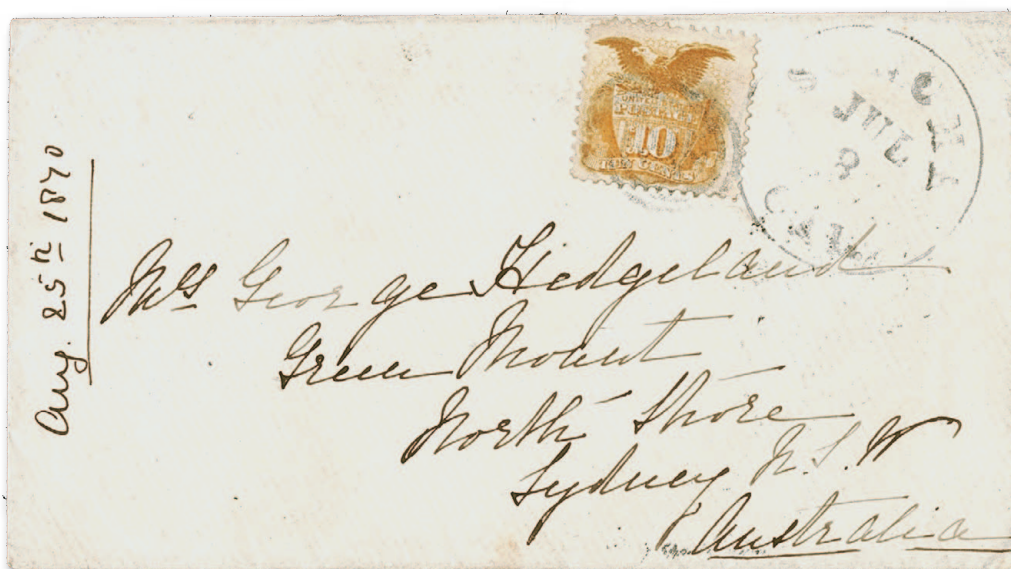 Aug. 25th 1870
UNITED STATES
POSTAGE
10
JUL
8
CAL
Mrs George Hedgeland
Green Mount
North Shore
Sydney N.S.W
Australia